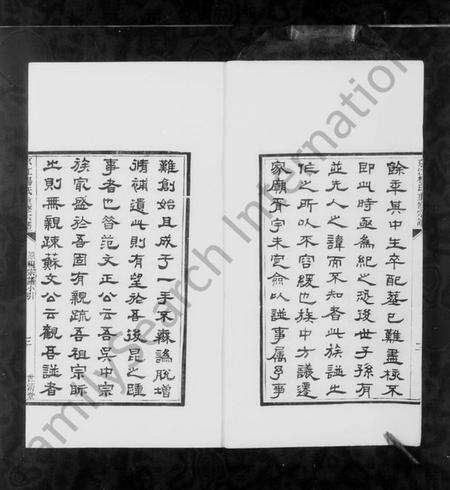 餘年其中生卒配葬已難盡稼不
即此時亟為紀之恐後世子孫有
並先人之諱而不知者此族譜之
作之所以不容緩也族中方議遷
家廟所宇未定僉以譜事屬予事
難創始且成于一手不森論脫增
補遺此則有望於吾後昆之踵
事者也昔范文正公云吾吳中宗
族家盛於吾固有親疏吾祖宗眎
之則無親疎蘇文公云觀吾譜者
二
三
FamilySearch International